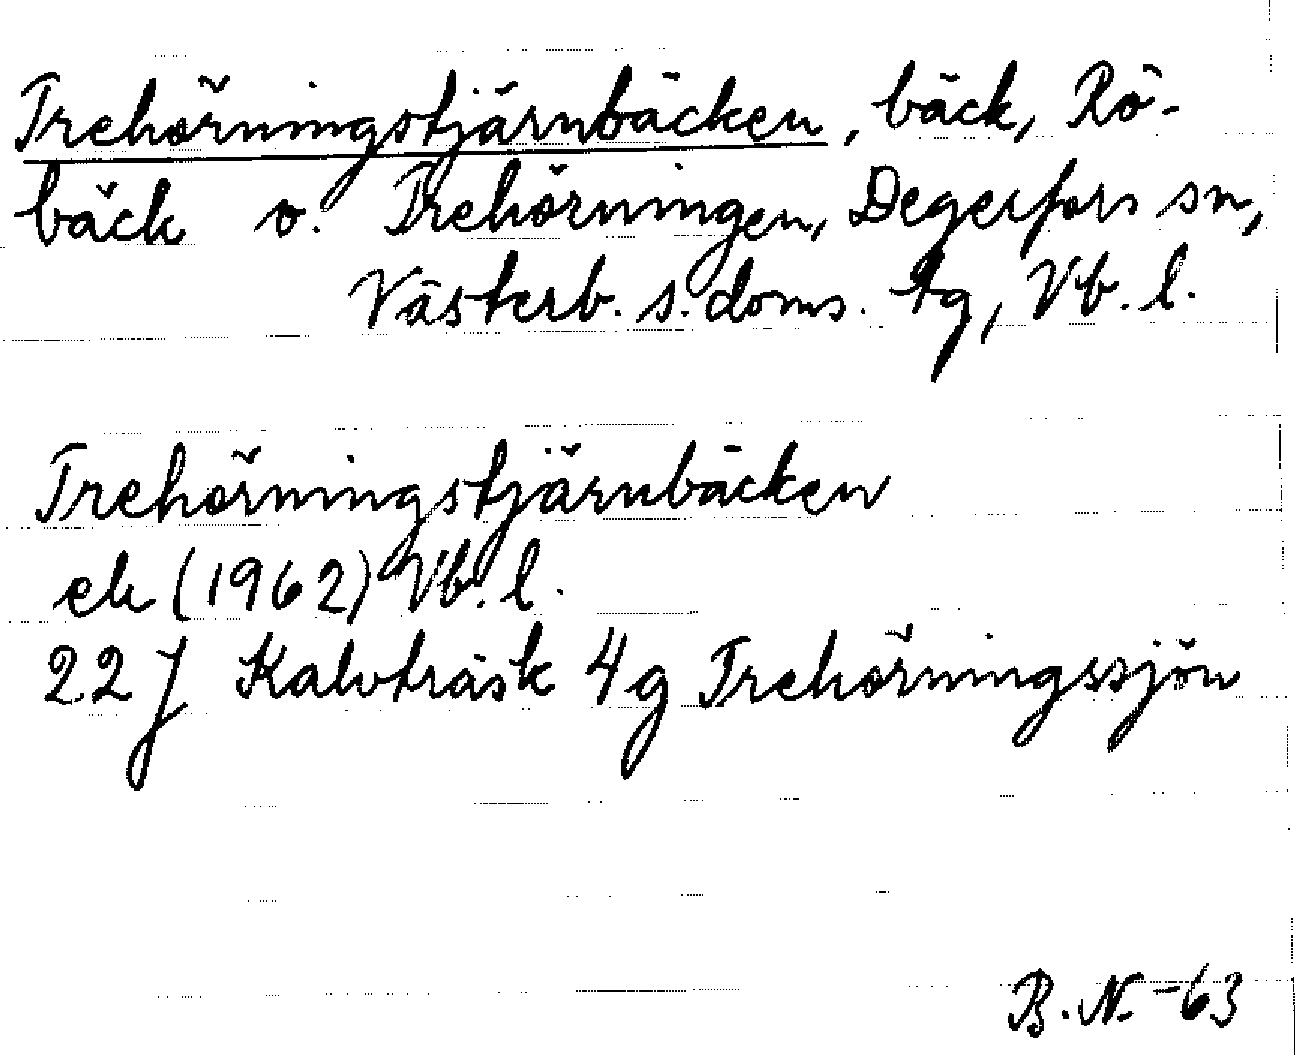 Trehörningstjärnbäcken, bäck, Rö-
bäck o. Trehörningen, Degerfors sn,
Västerb. s. doms. tg, Vb. l.
Trehörningstjärnbäcken
ek (1962) Vb. l.
22 J Kalvträsk 4g Trehörningssjön
B. N. -63